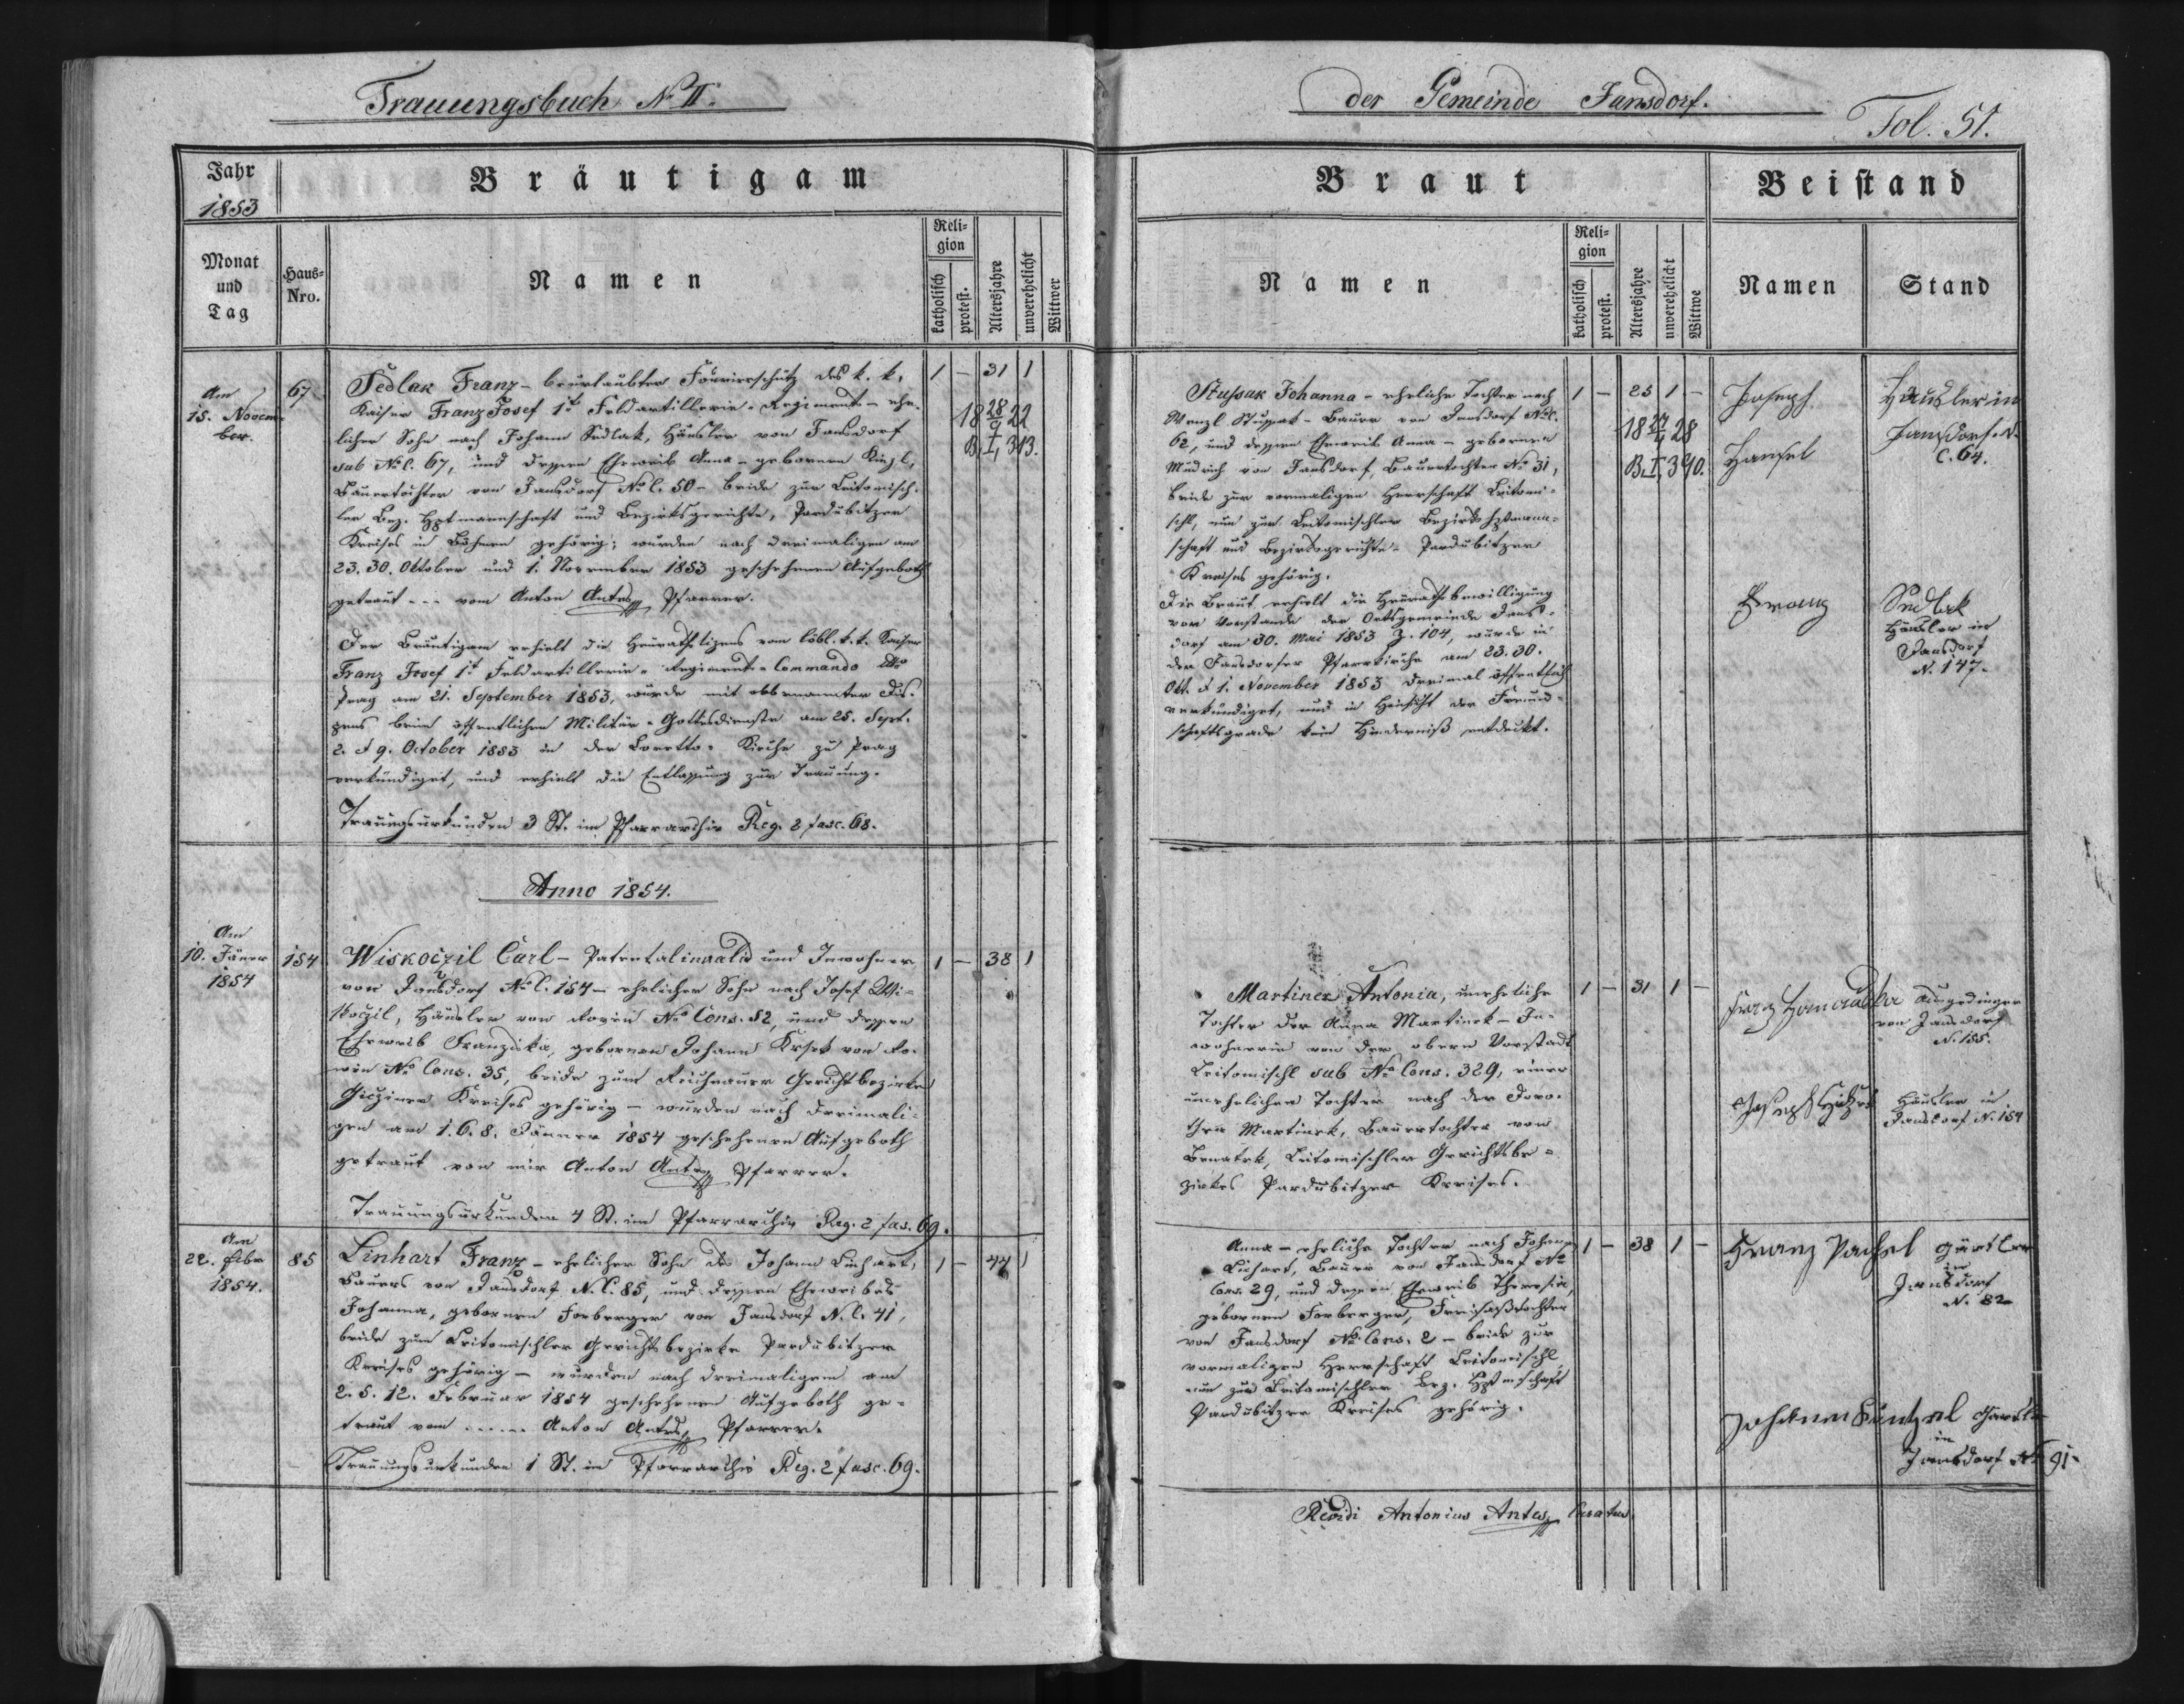 Trauungsbuch No II.
der Gemeinde Jansdorf.
Fol. 51.
Jahr
1853
Bräutigam
Monat
und
Tag
Haus-
Nro.
Namen
Reli-
gion
katholisch
protest.
Altersjahre
unverehelicht
Wittwer
Am
15. Novem-
ber.
67
Sedlak Franz - beurlaubter Fourierschütz des k. k.
Kaiser Franz Josef 1t Feldartillerie-Regiment - ehe-
licher Sohn nach Johann Sedlak, Häusler von Jansdorf
sub No C. 67, und dessen Eheweib Anna - geborenen Kinzl,
Bauertochter von Jansdorf No C. 50 - beide zur Leitomisch-
ler Bez. Hptmannschaft und Bezirksgerichte, Pardubitzer
Kreises in Böhmen gehörig; wurden nach dreimaligen am
23. 30. Oktober und 1. November 1853 geschehenen Aufgeboth
getraut - - - vom Anton Antes Pfarrer.
1 - 31 1
18 28/9 22
B. I, 313.
Der Bräutigam erhielt die Heurathslizens vom löbl. k. k. Kaiser
Franz Josef 1t Feldartillerie-Regiment-Commando dto
Prag am 21. September 1853, wurde mit obbenannter Dis-
pens beim öffentlichen Militär-Gottesdienste am 25. Sept.
2. & 9. October 1853 in der Loretto-Kirche zu Prag
verkündiget, und erhielt die Entlassung zur Trauung.
Trauungsurkunden 3 St. im Pfarrarchiv Reg. 2 fasc. 68.
Anno 1854.
Am
10. Jäner
1854
154
Wiskoczil Carl - Patentalinvalid und Inwohner
von Jansdorf No C. 154 - ehelicher Sohn nach Josef Wi-
skoczil, Häusler von No Cons. 52, und dessen
Eheweib Franziska, geborenen Johann Krsek von Ro-
win No Cons. 35, beide zum Reichenauer Gerichtbezirke
Gicziner Kreises gehörig - wurden nach dreimali-
gen am 1. 6. 8. Jänner 1854 geschehenen Aufgeboth
getraut von mir Anton Antes Pfarrer.
1 - 38 1
Trauungsurkunden 4 St. im Pfarrarchiv Reg. 2 fas. 69.
Am
22. Febr
1854.
85
Linhart Franz - ehelicher Sohn des Johann Linhart,
Bauers von Jansdorf N. C. 85, und dessen Eheweibes
Johanna, geborenen Forberger von Jansdorf N. C. 41,
beide zum Leitomischler Gerichtsbezirke Pardubitzer
Kreises gehörig - wurden nach dreimaligem am
2. 5. 12. Februar 1854 geschehenen Aufgeboth ge-
traut vom - - - - Anton Antes Pfarrer.
1 - 44 1
Trauungsurkunden 1 St. im Pfarrarchiv Reg. 2 fasc. 69.
Braut
Namen
Reli-
gion
katholisch
protest.
Altersjahre
unverehelicht
Wittwe
Beistand
Namen
Stand
Stupak Johanna - eheliche Tochter nach
Wenzl Stupak - Bauer von Jansdorf No C.
62, und dessen Eheweib Anna - geborenen
von Jansdorf, Bauertochter No 31,
beide zur vormaligen Herrschaft Leitomi-
schl, nun zur Leitomischler Bezirkshptmann-
schaft und Bezirksgerichte - Pardubitzer
Kreises gehörig.
1 - 25 1 -
18 27/4 28
B. I, 390.
Die Braut erhielt die Heurathsbewilligung
vom Vorstande der Ortsgemeinde Jans-
dorf am 30. Mai 1853 Z. 104, wurde in
der Jansdorfer Pfarrkirche am 23. 30.
Okt. & 1. November 1853 dreimal öffentlich
verkündiget, und in Hinsicht der Freund-
schaftsgrade kein Hinderniß entdeckt.
Joseph
Hansel
Häusler in
Jansdorf. N.
C. 64.
Franz
Sedlak
Häusler in
Jansdorf
N. 147.
Martinek Antonia, uneheliche
Tochter der Anna Martinek - In-
wohnerin von der obern Vorstadt
Leitomischl sub No Cons. 329, einer
unehelichen Tochter nach der Doro-
thea Martinek, Bauertochter von
Benatek, Leitomischler Gerichtsbe-
zirkes Pardubitzer Kreises.
1 - 31 1 -
Ausgedinger
von Jansdorf
N. 155.
Joseph
Häusler in
Jansdorf N. 154
Anna - eheliche Tochter nach Johann
Lichart, Bauer von Jansdorf No
Cons. 29, und dessen Eheweib Theresia,
geborenen Forberger, Freisaßtochter
von Jansdorf No Cons. 2 - beide zur
vormaligen Herrschaft Leitomischl,
nun zur Leitomischler Bez. Hptmschaft
Pardubitzer Kreises gehörig.
1 - 38 1 -
Franz Pachel Gärtler
in
Jansdorf
N. 82
Johann Küntzel Gärtler
in
Jansdorf No 91.
Revidi Antonius Antes Curatus.